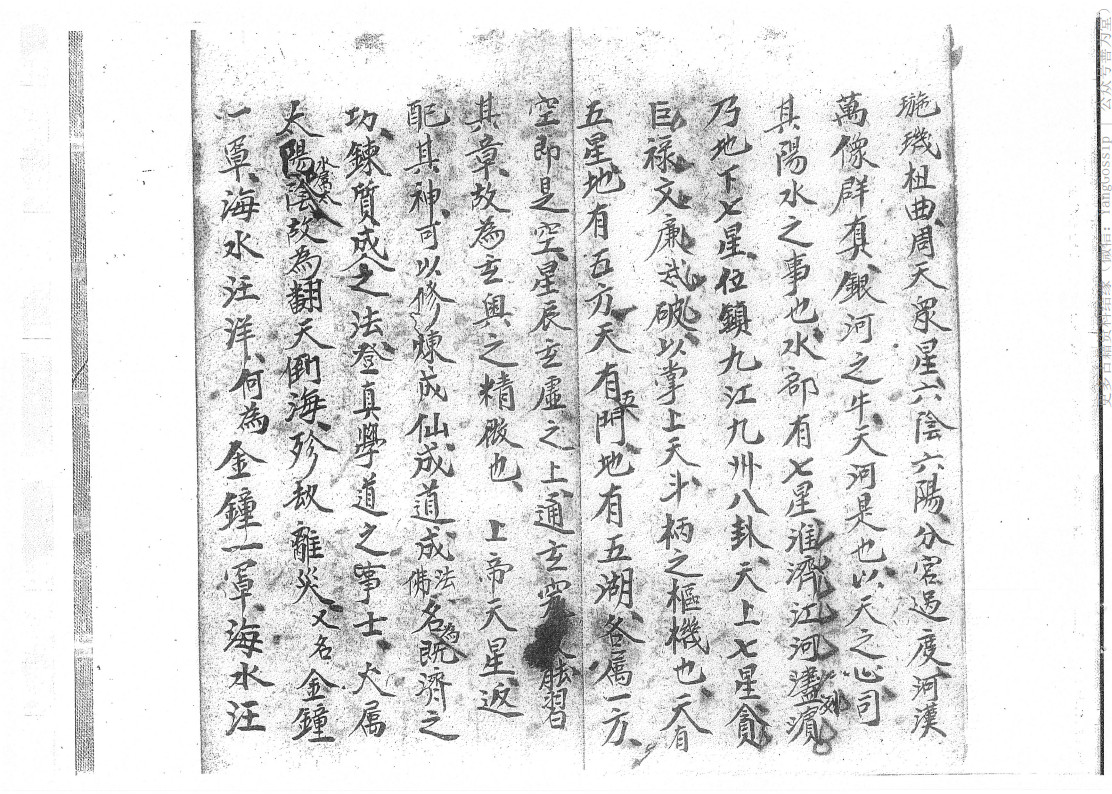 璇璣杻曲周天衆星六陰六陽分宮过度河漢
萬像群真銀河之牛天河是也以天之心司
其陽水之事也水郡有七星淮濟江河瀆
乃地下七星位鎮九江九州八卦天上七星貪
巨禄文廉武破以掌上天斗柄之樞機也天有
五星地有五方天有門地有五湖各属一方
空即是空星辰玄虛之上通玄法習
其章故為玄奧之精微也上帝天星返
配其神可以修煉成仙成道成佛法名為既濟之
功鍊質成之法登真學道之事士火属
太陽水属陰故為翻天倒海殄劫離災又名金鐘
一覃海水汪洋何為金鐘一覃海水汪